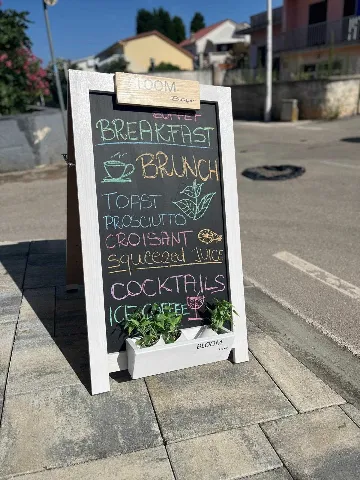 LOOM
Bar
COFFEE
BREAKFAST
BRUNCH
TOAST
PROSCIUTTO
CROISANT
squeezed JUICE
COCKTAILS
ICE COFFEE
BLOOM